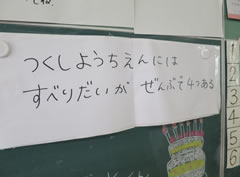 つくしようちえんには
すべりだいが ぜんぶで4つある
1
2
3
4
5
6